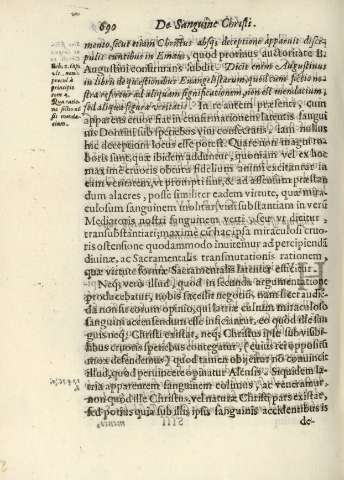 690 De Sanguine Christi.
mento, sicut etiam Christus absq; deceptione apparuit disci-
pulis euntibus in Emaus, quod proximus auctoritate B.
Augustini confirmans subdit. Dicit enim Augustinus
in libro de quæstionibus Evangelistarum, quod cum fictio no-
stra refertur ad aliquam significationem, non est mendatium,
sed aliqua figura veritatis. In re autem præsenti, cum
apparens cruor fiat in confirmationem latentis sangui-
nis Domini sub speciebus vini consecratis, iam nullus
hic deceptioni locus esse potest. Quare non magni ro-
boris sunt, quæ ibidem adduntur, quoniam vel ex hoc
maxime cruoris obtutu fidelium animi excitantur in
eum venerem, ut promptius, & ad assensum præstan-
dum alacres, posse similiter eadem virtute, quæ mira-
culosum sanguinem
Mediatoris nostri sanguinem verti, seu ut dicitur
transubstantiari; maxime cu hac ipsa miraculosi cruo-
ris ostensione quodammodo invitemur ad percipienda
divinæ, ac Sacramentalis transmutationis rationem,
quæ virtute formæ Sacramentalis latenter efficitur.
Neq; vero illud, quod in secunda argumentatione
producebatur, nobis facessit negotiũ, nam licet audie-
da non sit eorum opinio, qui latriæ cultum miraculoso
sanguini accensendum esse inficiant, eo quod ille san-
guis neq; Christi existat, neq; Christus ipse sub visibi-
libus cruoris speciebus contegatur, (cuius rei oppositũ
mox defendemus) quod tamen obijcitur no convincit
illud, quod pervincere opinatur Alensis. Siquidem la-
tria apparentem sanguinem colimus, ac veneramur,
non quod ille Christus, vel naturæ Christi pars existat,
sed potius quia sub illis ipsis sanguinis accidentibus is
de-